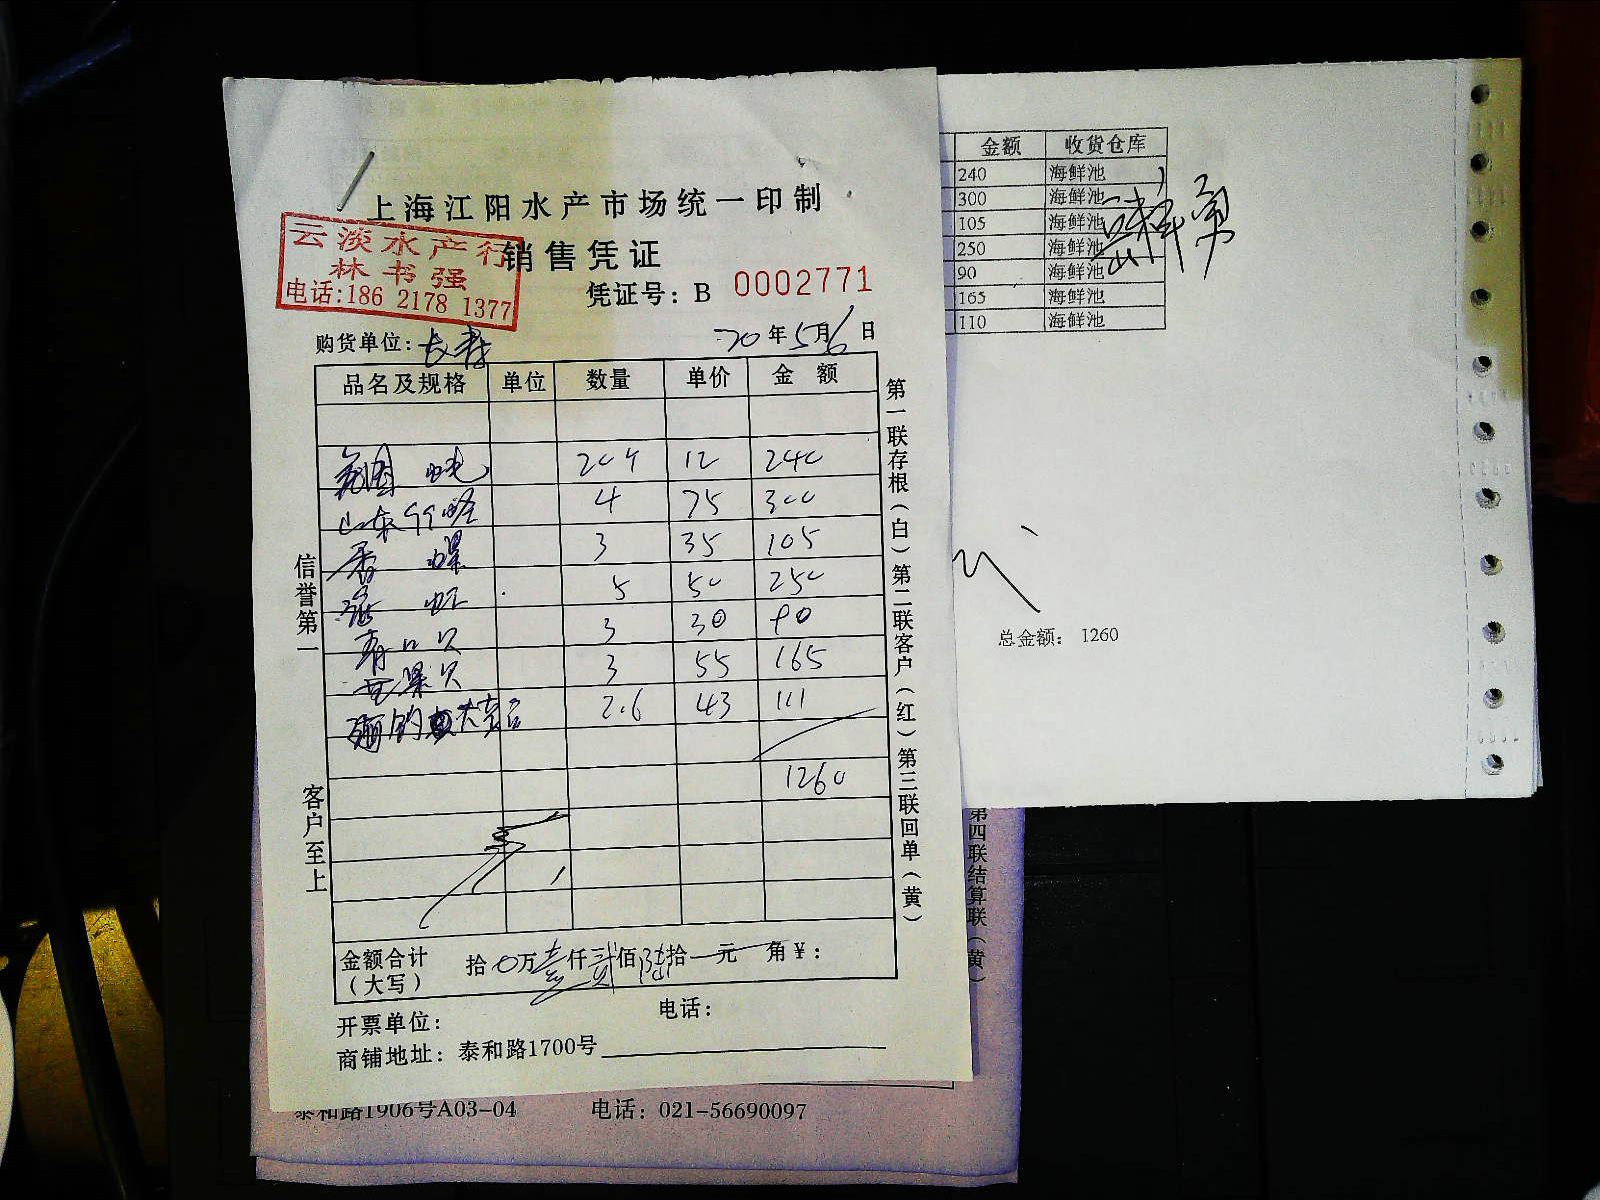 上海江阳水产市场统一印制
云淡水产行
林书强
电话:186 2178 1377
销售凭证
凭证号：B 0002771
购货单位：长寿 20年5月6日
品名及规格 单位 数量 单价 金 额
12 240
山东 4 75 300
香螺 3 35 105
虾 5 50 250
青口贝 3 30 90
贝 3 55 165
2.6 43 111
1260
金额合计（大写） 拾0万壹仟贰佰陆拾一元 角￥：
开票单位： 电话：
商铺地址：泰和路1700号
信誉第一
客户至上
第一联存根（白）第二联客户（红）第三联回单（黄）
金额 收货仓库
240 海鲜池
300 海鲜池
105 海鲜池
250 海鲜池
90 海鲜池
165 海鲜池
110 海鲜池
总金额： 1260
第四联结算联（黄）
泰和路1906号A03-04 电话：021-56690097